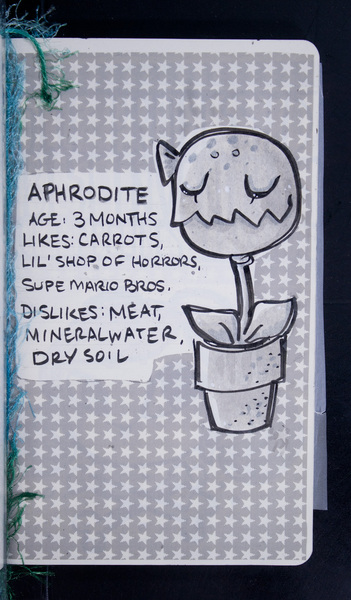 APHRODITE
AGE: 3 MONTHS
LIKES: CARROTS,
LIL' SHOP OF HORRORS,
SUPE MARIO BROS.
DISLIKES: MEAT,
MINERALWATER,
DRY SOIL